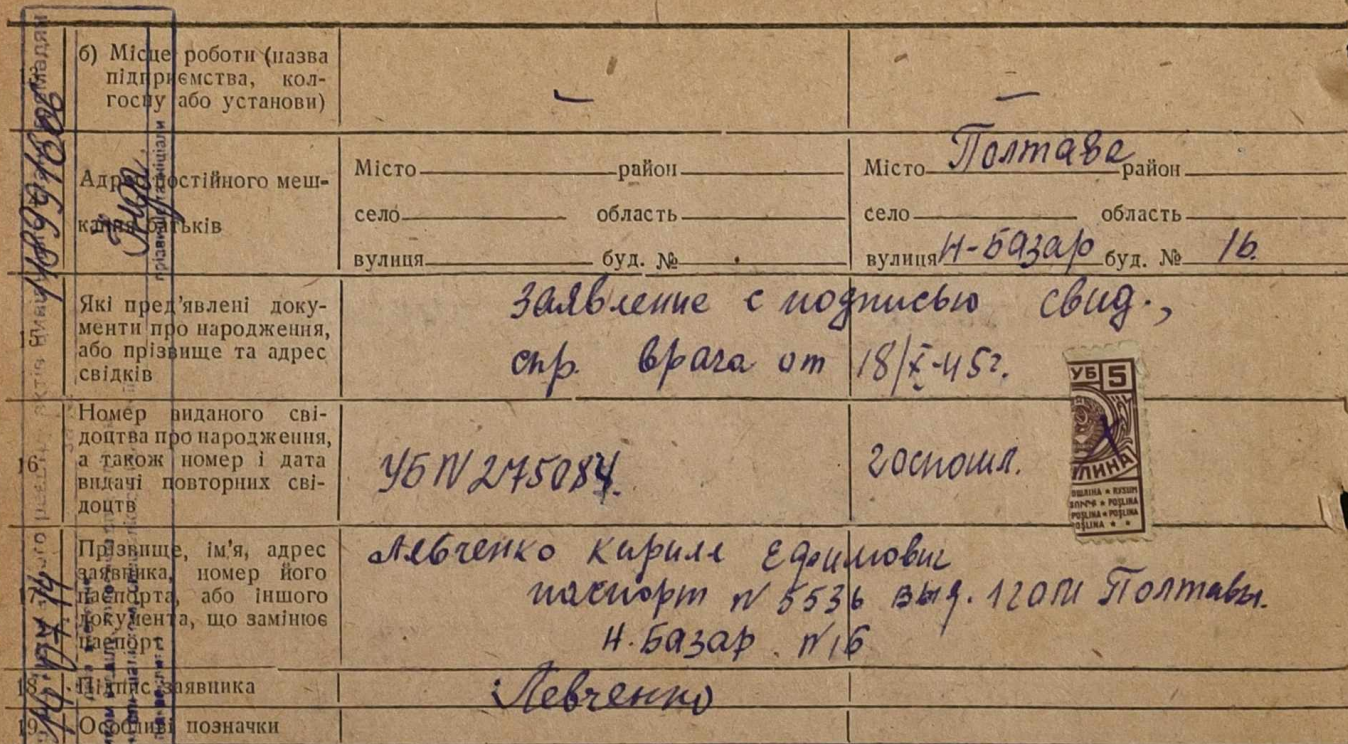 б) Місце роботи (назва
підприємства, кол-
госпу або установи)
—
—
Адреса постійного меш-
кання батьків
Місто район
село область
вулиця буд. №
Місто Полтава район
село область
вулиця Н-Базар буд. № 16.
15.
Які пред'явлені доку-
менти про народження,
або прізвище та адрес
свідків
заявление с подписью свид.,
спр. врача от 18/X-45г.
16.
Номер виданого сві-
доцтва про народження,
а також номер і дата
видачі повторних сві-
доцтв
УБ N 275084.
госпошл.
УБ 5
ШЛИНА
POŞLINA
17.
Прізвище, ім'я, адрес
заявника, номер його
паспорта, або іншого
документа, що замінює
паспорт
Левченко Кирилл Ефимович
паспорт N 5536 выд. 1 гом Полтавы.
Н. Базар. N 16
18.
Підпис заявника
Левченко
19.
Особливі позначки